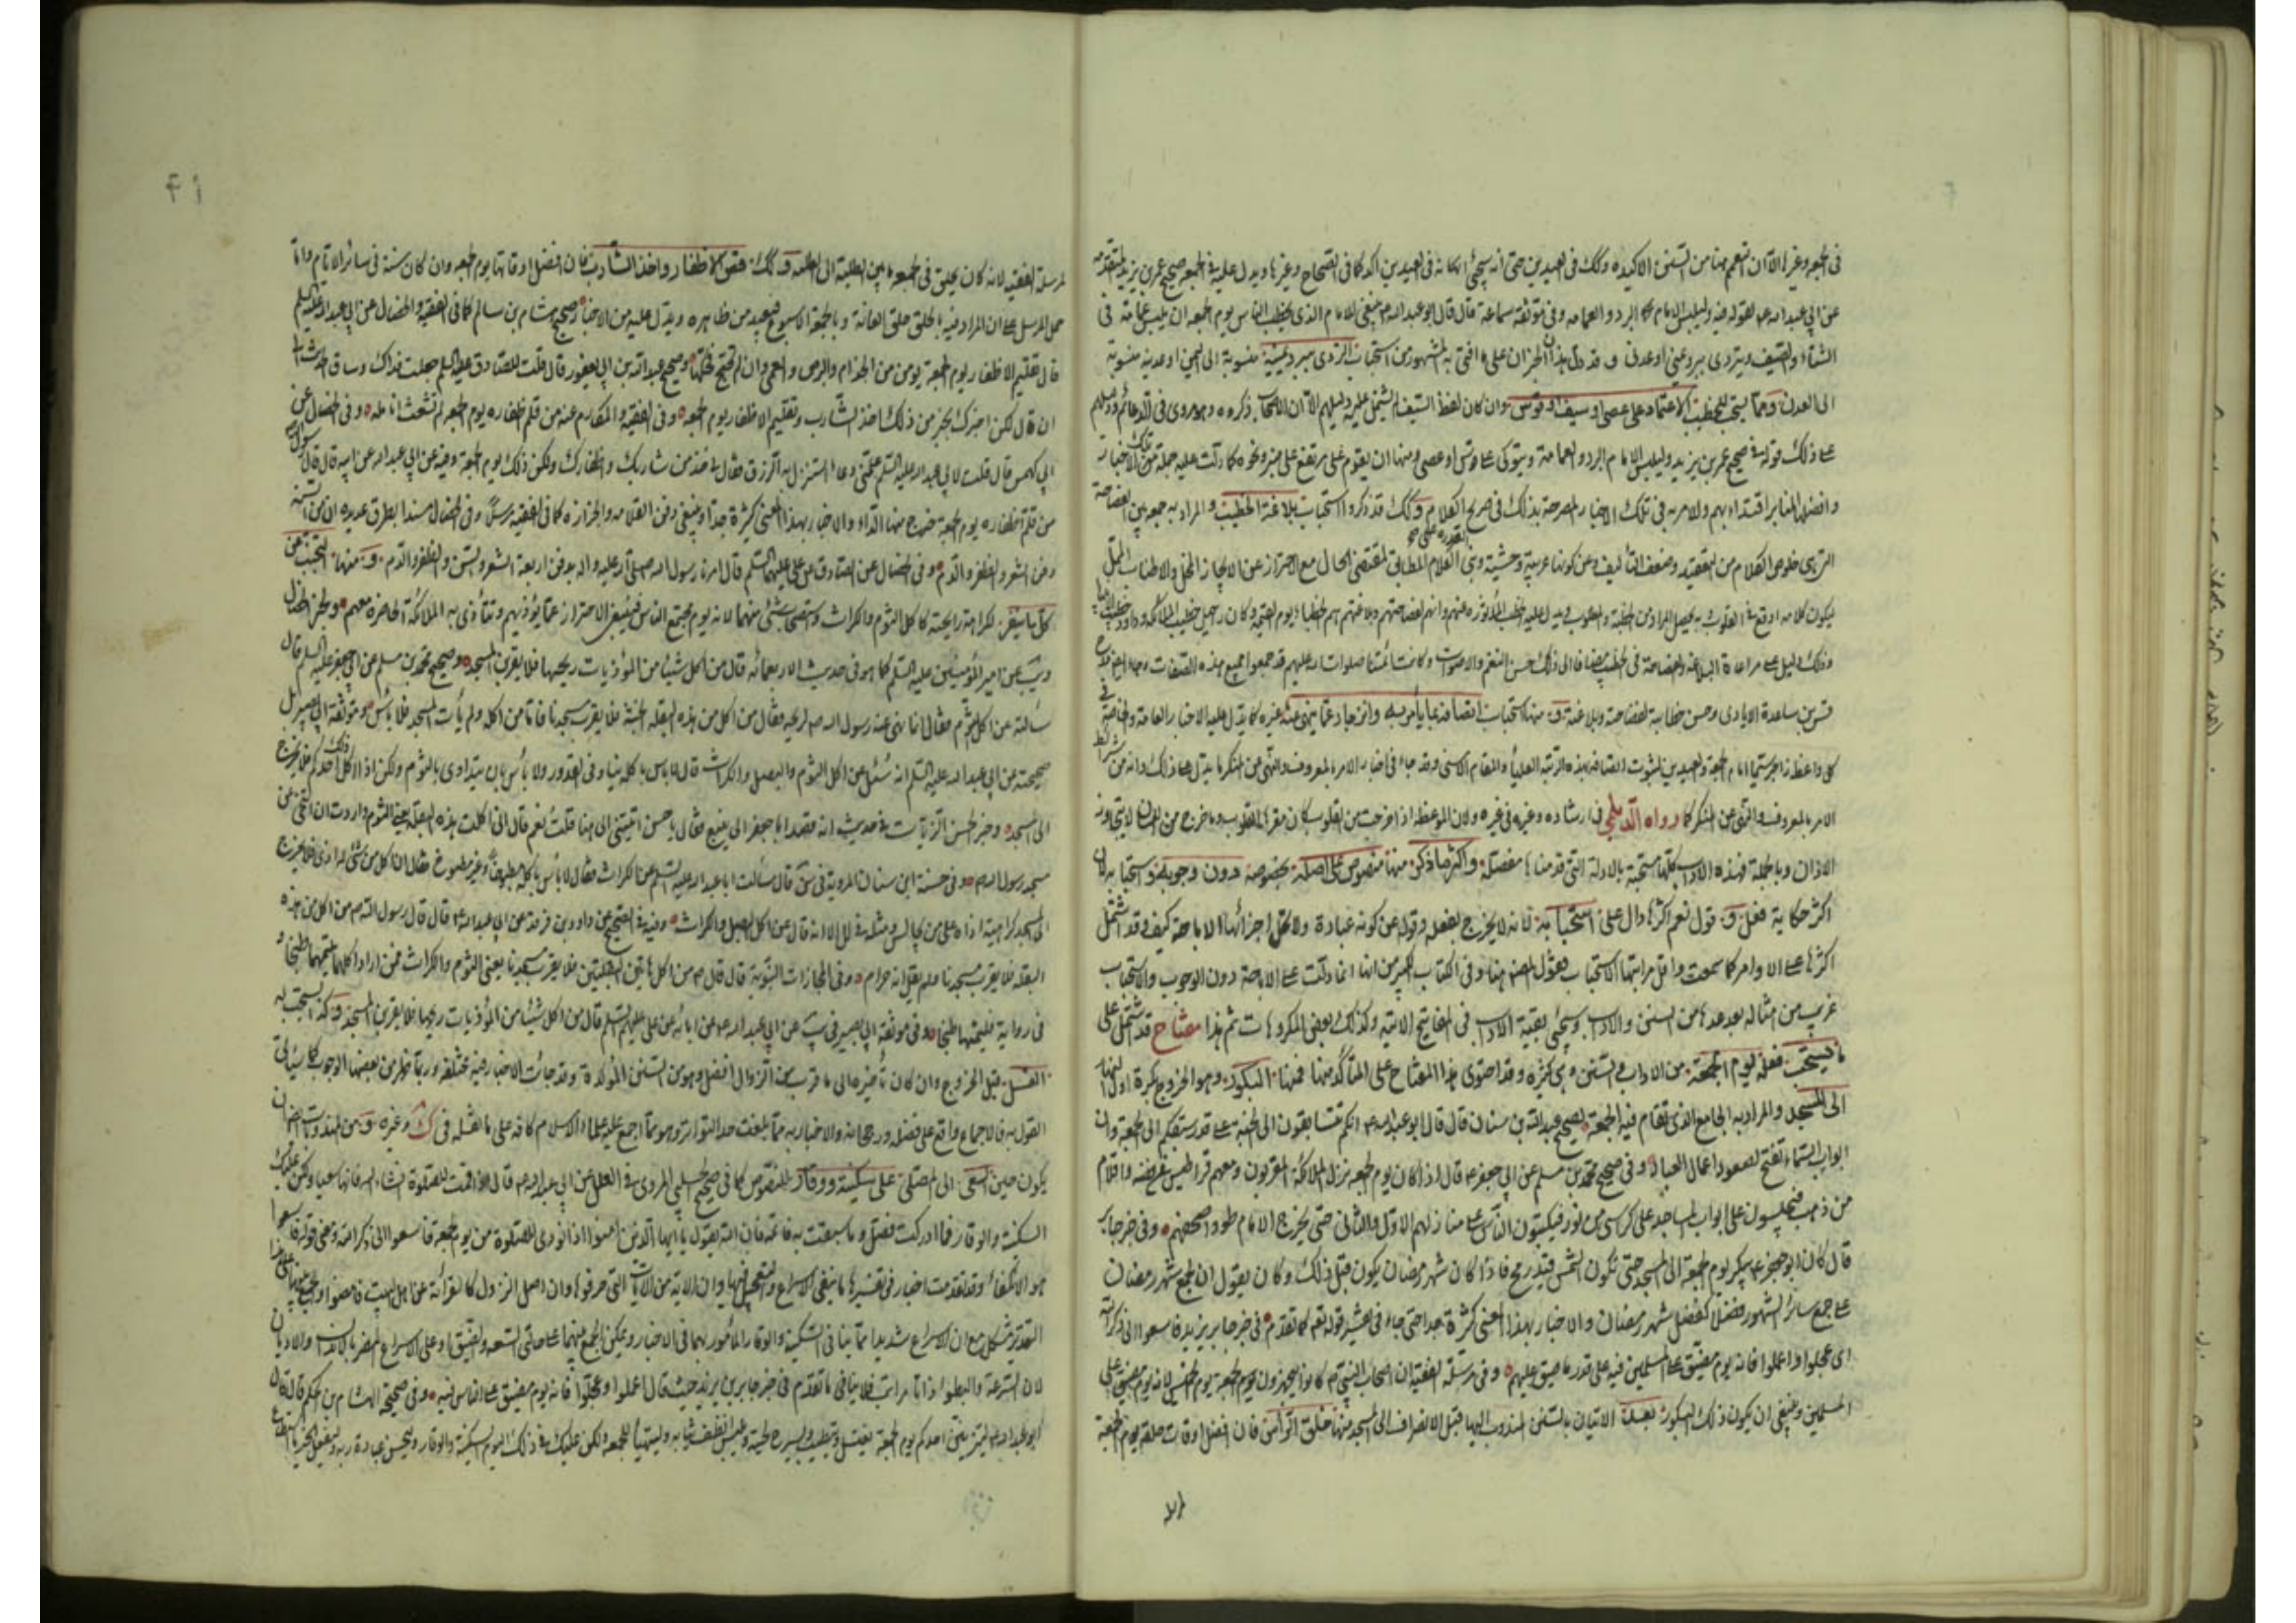 في الجمعة وغيرها الا ان التعمم منها من السنن الاكيدة وكذلك في العيدين حتى انه يجئ انكانه في العيدين اكد كما في الصحاح وغيرها ويدل عليه في الجمعة صحيح عمر بن يزيد المتقدمة
عن ابي عبد الله ع لقوله فيه وليلبس الامام البرد والعمامه وفي موثقة سماعة قال قال ابو عبد الله ع ينبغي للامام الذي يخطب الناس يوم الجمعه ان يلبس عمامة في
الشتاء والصيف ويتردى ببرد يمني او عدني وقد دل هذان الخبران على ما افتى به المشهور من استحباب التردي ببرد يمنية منسوبة الى اليمن او عدنية منسوبة
الى العدن ومما يستحب للخطيب الاعتماد على عصا او سيف او قوس وان كان لفظ السيف لم يشتمل عليه دليلهم الا ان الاصحاب ذكروه وهو مروي في الدعائم ودليلهم
على ذلك قوله في صحيح عمر بن يزيد وليلبس الامام البرد والعمامة ويتوكى على قوس او عصى ومنها ان يقوم على مرتفع على منبر ونحوه كما دلت عليه جملة من تلك الاخبار
وافضل المنابر اقتداء بهم وللامر به في تلك الاخبار المصرحة بذلك في صريح الكلام وكذلك قد ذكروا استحباب بلاغة الخطيب والمراد به جمعه بين الفصاحة
التي هي خلوص الكلام من التعقيد وضعف التأليف وعن كونها غريبة وحشية وبين القدرة على الكلام المطابق لمقتضى الحال مع الاحتراز عن الايجاز المخل والاطناب الممل
ليكون كلامه اوقع في القلوب
وذلك دليل على مراعاة البلاغة والفصاحة في الخطيب مضافا الى ذلك حسن النغم والاصوات وكانت ائمتنا صلوات الله عليهم قد جمعوا جميع هذه الصفات
قس بن ساعدة الايادي وحسن خطابه لفصاحته وبلاغته ومنها استحباب اتصافه بما يأمر به وانزجاره عما ينهى عنه غيره كما يدل عليه الاخبار العامة والخاصة في
كل واعظ زاجر سيما امام الجمعة والعيدين لثبوت اتصافه بهذه الرتبة العليا والمقام الاسنى وقد جاء في اخبار الامر بالمعروف والنهي عن المنكر ما يدل على ذلك وانه من شرائط
الامر بالمعروف والنهي عن المنكر كما رواه الديلمي في ارشاده وغيره في غيره ولان الموعظة اذا خرجت من القلوب كان مقرها القلوب وما خرج من اللسان لا يتجاوز
الاذان وبالجملة فهذه الاداب كلها مستحبة بالادلة التي قدمناها مفصلة واكثر ما ذكر منها منصوص على اصله بخصوصه دون وجوبه واستحبابه لان
اكثر حكاية فعل قول نعم اكثرها دال على استحبابه لانه لا يخرج بفعله وقوله عن كونه عبادة ولا تقل اجزائها الاباحة كيف وقد اشتمل
اكثرها على الاوامر كما سمعت واقل مراتبها الاستحباب فقول المصنف هنا وفي الكتاب الكبير من انها انما دلت على الاباحة دون الوجوب والاستحباب
غريب من امثاله بعد عدها من السنن والاداب وسيجئ بقية الاداب في المفاتيح الاتية وكذلك بعض المكروهات ثم هذا مفتاح قد اشتمل على
ما يستحب فعله يوم الجمعة من الاداب والسنن وهي كثيرة وقد احتوى هذا المفتاح على المتأكد منها فمنها البكور وهو الخروج بكرة اول النهار
الى المسجد والمراد به الجامع الذي تقام فيه الجمعة لصحيح عبد الله بن سنان قال قال ابو عبد الله ع انكم تتسابقون الى الجنة على قدر سبقكم الى الجمعة وان
ابواب السماء تفتح لصعود اعمال العباد وفي صحيح محمد بن مسلم عن ابي جعفر ع قال اذا كان يوم الجمعة نزل الملائكة المقربون ومعهم قراطيس من فضة واقلام
من ذهب فيجلسون على ابواب المساجد على كراسي من نور فيكتبون الناس على منازلهم الاول والثاني حتى يخرج الامام طووا صحفهم وفي خبر جابر
قال كان ابو جعفر ع يبكر يوم الجمعة الى المسجد حتى تكون الشمس قيد رمح فاذا كان شهر رمضان يكون قبل ذلك وكان يقول ان لجمع شهر رمضان
على جمع سائر الشهور فضلا كفضل شهر رمضان والاخبار بهذا المعنى كثيرة جدا حتى جاء في تفسير قوله تعالى كما تقدم في خبر جابر بن يزيد فاسعوا الى ذكر الله
اى عجلوا واعملوا فانه يوم مضيق على المسلمين فيه على قدر ما ضيق عليهم وفي مرسلة الفقيه ان اصحاب النبي ص كانوا يتجهزون يوم الجمعة يوم الخميس لانه يوم مضيق على
المسلمين وينبغي ان يكون ذلك البكور بعد الاتيان بالسنن المندوب اليها قبل الانصراف الى المسجد منها حلق الرأس فان افضل اوقات حلقه يوم الجمعة
لمرسلة الفقيه لانه كان يحلق في الجمعة ما بين الطلية الى الطلية وكذلك قص الاظفار واخذ الشارب فان افضل اوقاتها يوم الجمعه وان كان سنة في سائر الايام واما
حمل المرسل على ان المراد فيه بالحلق حلق العانة وبالجمعة الاسبوع فبعيد من ظاهره ويدل عليه من الاخبار صحيح هشام بن سالم كما في الفقيه والخصال عن ابي عبد الله عليه السلم
قال تقليم الاظفار يوم الجمعة يؤمن من الجذام والبرص والعمى وان لم تحتج فحكها وصحيح عبد الله بن ابي يعفور قال قلت للصادق عليه السلم جعلت فداك وساق الحديث الى
ان قال لكن اخبرك بخير من ذلك اخذ الشارب وتقليم الاظفار يوم الجمعة وفي الفقيه والمكارم عنه من قلم اظفاره يوم الجمعه لم تشعث انامله وفي الخصال عن
ابي كهمس قال قلت لابي عبد الله عليه السلم علمني دعاء استنزل به الرزق فقال لي خذ من شاربك واظفارك وليكن ذلك يوم الجمعة وفيه عن ابي عبد الله عن ابيه قال قال رسول الله
من قلم اظفاره يوم الجمعة خرج منها الداء والاخبار بهذا المعنى كثيرة جدا وينبغي دفن القلامة والجزازة كما في الفقيه مرسلا وفي الخصال مسندا بطرق عديدة ان من السنة
دفن الشعر والظفر والدم وفي الخصال عن الصادق عن علي عليهما السلم قال امرنا رسول الله صلى الله عليه واله بدفن اربعة الشعر والسن والظفر والدم ومنها التجنب عن
كل ما ينفر لكراهة رايحته كاكل الثوم والكراث واستصحاب شئ منهما لانه يوم مجتمع الناس فينبغي الاحتراز عما يؤذيهم وتتأذى به الملائكة الحاضرة معهم ولخبر الخصال
عن امير المؤمنين عليه السلم كما هو في حديث الاربعمائة قال من اكل شيئا من المؤذيات ريحها فلا يقربن المسجد وصحيح محمد بن مسلم عن ابي جعفر عليه السلم قال
سألته عن اكل الثوم فقال انما نهى عنه رسول الله ص لريحه فقال من اكل من هذه البقلة الخبيثة فلا يقرب مسجدنا فاما من اكله ولم يأت المسجد فلا بأس وموثقة ابي بصير بل
صحيحته عن ابي عبد الله عليه السلم انه سئل عن اكل الثوم والبصل والكراث قال لا باس باكله نيا وفي القدور ولا بأس بان يتداوى بالثوم ولكن اذا اكل ذلك احدكم فلا يخرج
الى المسجد وخبر الحسن الزيات في حديث انه قصد ابا جعفر الى ينبع فقال يا حسن اتيتني الى هنا قلت نعم قال اني اكلت هذه البقلة يعني الثوم واردت ان اتنحى عن
مسجد رسول الله ص وفي حسنة ابن سنان المروية قال سألت ابا عبد الله عليه السلم عن الكراث فقال لا بأس باكله مطبوخا وغير مطبوخ فقال ان اكل من شئ له اذى فلا يخرج
الى المسجد كراهية اذاه على من يجالس ومثله في العلل الا انه قال عن اكل البصل والكراث وفيه في الصحيح عن داود بن فرقد عن ابي عبد الله ع قال قال رسول الله ص من اكل من هذه
البقلة فلا يقرب مسجدنا ولم يقل انه حرام وفي المجازات النبوية قال قال ص من اكل هاتين البقلتين فلا يقرب مسجدنا يعني الثوم والكراث فمن اراد اكلهما فليمتهما طبخا و
في رواية فليمثهما طبخا وفي موثقة ابي بصير عن ابي عبد الله ع عن ابائه عن علي عليهم السلم قال من اكل شيئا من المؤذيات ريحها فلا يقربن المسجد وكذا يستحب له
الغسل قبل الخروج وان كان تأخيره الى ما قرب من الزوال افضل وهو من السنن المؤكدة وقد جائت الاخبار فيه مختلفة وربما ظهر من بعضها الوجوب كما سيأتي
القول به فالاجماع واقع على فضله ورجحانه والاخبار به مما بلغت حد التواتر وهو مما اجمع عليه علماء الاسلام كافة على ما نقله في ك وغيره ومن المندوبات ان
يكون حين السعى الى المصلى على سكينة ووقار للنصوص كما في صحيح الحلبي المروي في العلل عن ابي عبد الله ع قال اذا قمت للصلوة انشاء الله فاتها سعيا وليكن عليك
السكينة والوقار فما ادركت فصل وما سبقت به فاتمه فان الله يقول يا ايها الذين امنوا اذا نودى للصلوة من يوم الجمعة فاسعوا الى ذكر الله ومعنى قوله فاسعوا
هو الانكفاء وقد تقدمت اخبار في تفسيرها ما ينبغي الاسراع والتعجيل فيها وان الاية من الايات التي حرفوها وان اصل النزول كما قرأته عن اهل البيت فامضوا
التقدير مشكل مع ان الاسراع شديدا مما ينافي السكينة والوقار المأمور بهما في الاخبار ويمكن الجمع بينهما على حالتي السعة والضيق او على الاسراع المضر بالابدان والاديان
لان السرعة والبطؤ اذا تا مراتب فلا ينافي ما تقدم في خبر جابر بن يزيد حيث قال اعملوا وعجلوا فانه يوم مضيق على الناس فيه وفي صحيحة هشام بن الحكم قال قال
ابو عبد الله ع ليتزين احدكم يوم الجمعة يغتسل ويتطيب ويسرح لحيته ويلبس انظف ثيابه وليتهيأ للجمعة وليكن عليه في ذلك اليوم السكينة والوقار وليحسن عبادة ربه وليفعل الخير ما استطاع